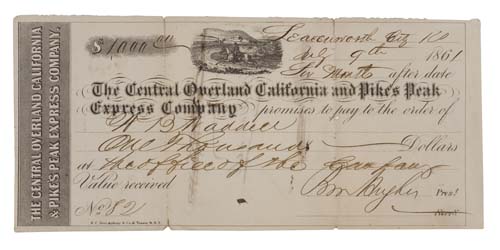 THE CENTRAL OVERLAND CALIFORNIA
& PIKES PEAK EXPRESS COMPANY.
$ 1000 00
Leavenworth City
July 9th 1861
Six Months after date
The Central Overland California and Pike's Peak
Express Company promises to pay to the order of
W B Waddell
One thousand Dollars
at the office of the Company
Value received
Bela M Hughes Prest
No 82